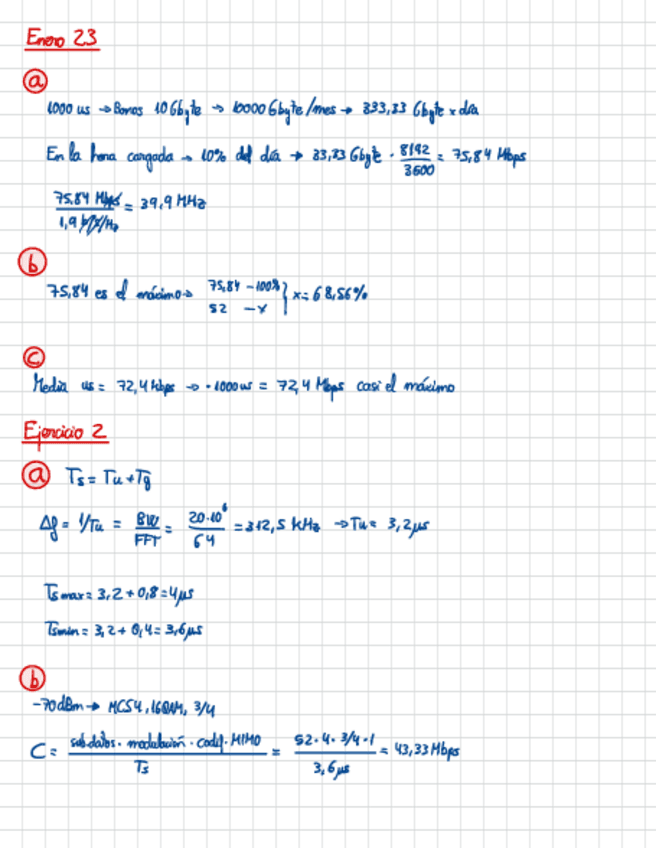 Enero 23
a
1000 us → Bonos 10 Gbyte → 10000 Gbyte/mes → 333,33 Gbyte x día
En la hora cargada → 10% del día → 33,33 Gbyte · 8192/3600 = 75,84 Mbps
75,84 Mbps / 1,9 b/s/Hz = 39,9 MHz
b
75,84 es el máximo → 75,84 - 100% } x = 68,56%
52 - x
c
Media us = 72,4 kbps → · 1000 us = 72,4 Mbps casi el máximo
Ejercicio 2
a Ts = Tu + Tg
Δf = 1/Tu = BW/FFT = 20·10⁶/64 = 312,5 kHz → Tu = 3,2 μs
Ts max = 3,2 + 0,8 = 4 μs
Tsmin = 3,2 + 0,4 = 3,6 μs
b
-70 dBm → MCS4, 16QAM, 3/4
C = sub.datos · modulación · codif · MIMO / Ts = 52 · 4 · 3/4 · 1 / 3,6 μs = 43,33 Mbps